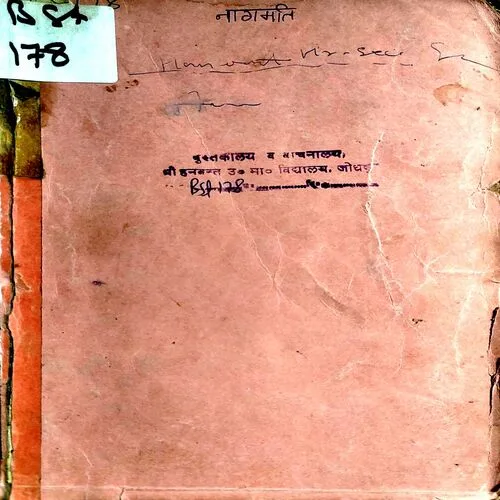 BSt
178
नागमति
Hanwant Hr. Sec. Sc
पुस्तकालय व वाचनालय,
श्री हनवन्त उ० मा० विद्यालय, जोधपुर
BSt 178